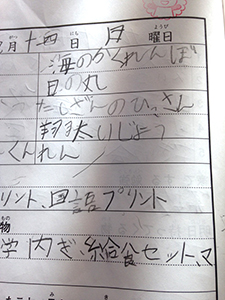 月十四日 月曜日
がつ にち ようび
海のかくれんぼ
日の丸
たしざんのひっさん
くんれん
リント、国語プリント
物
もの
学 内ぎ、給食セット、マ